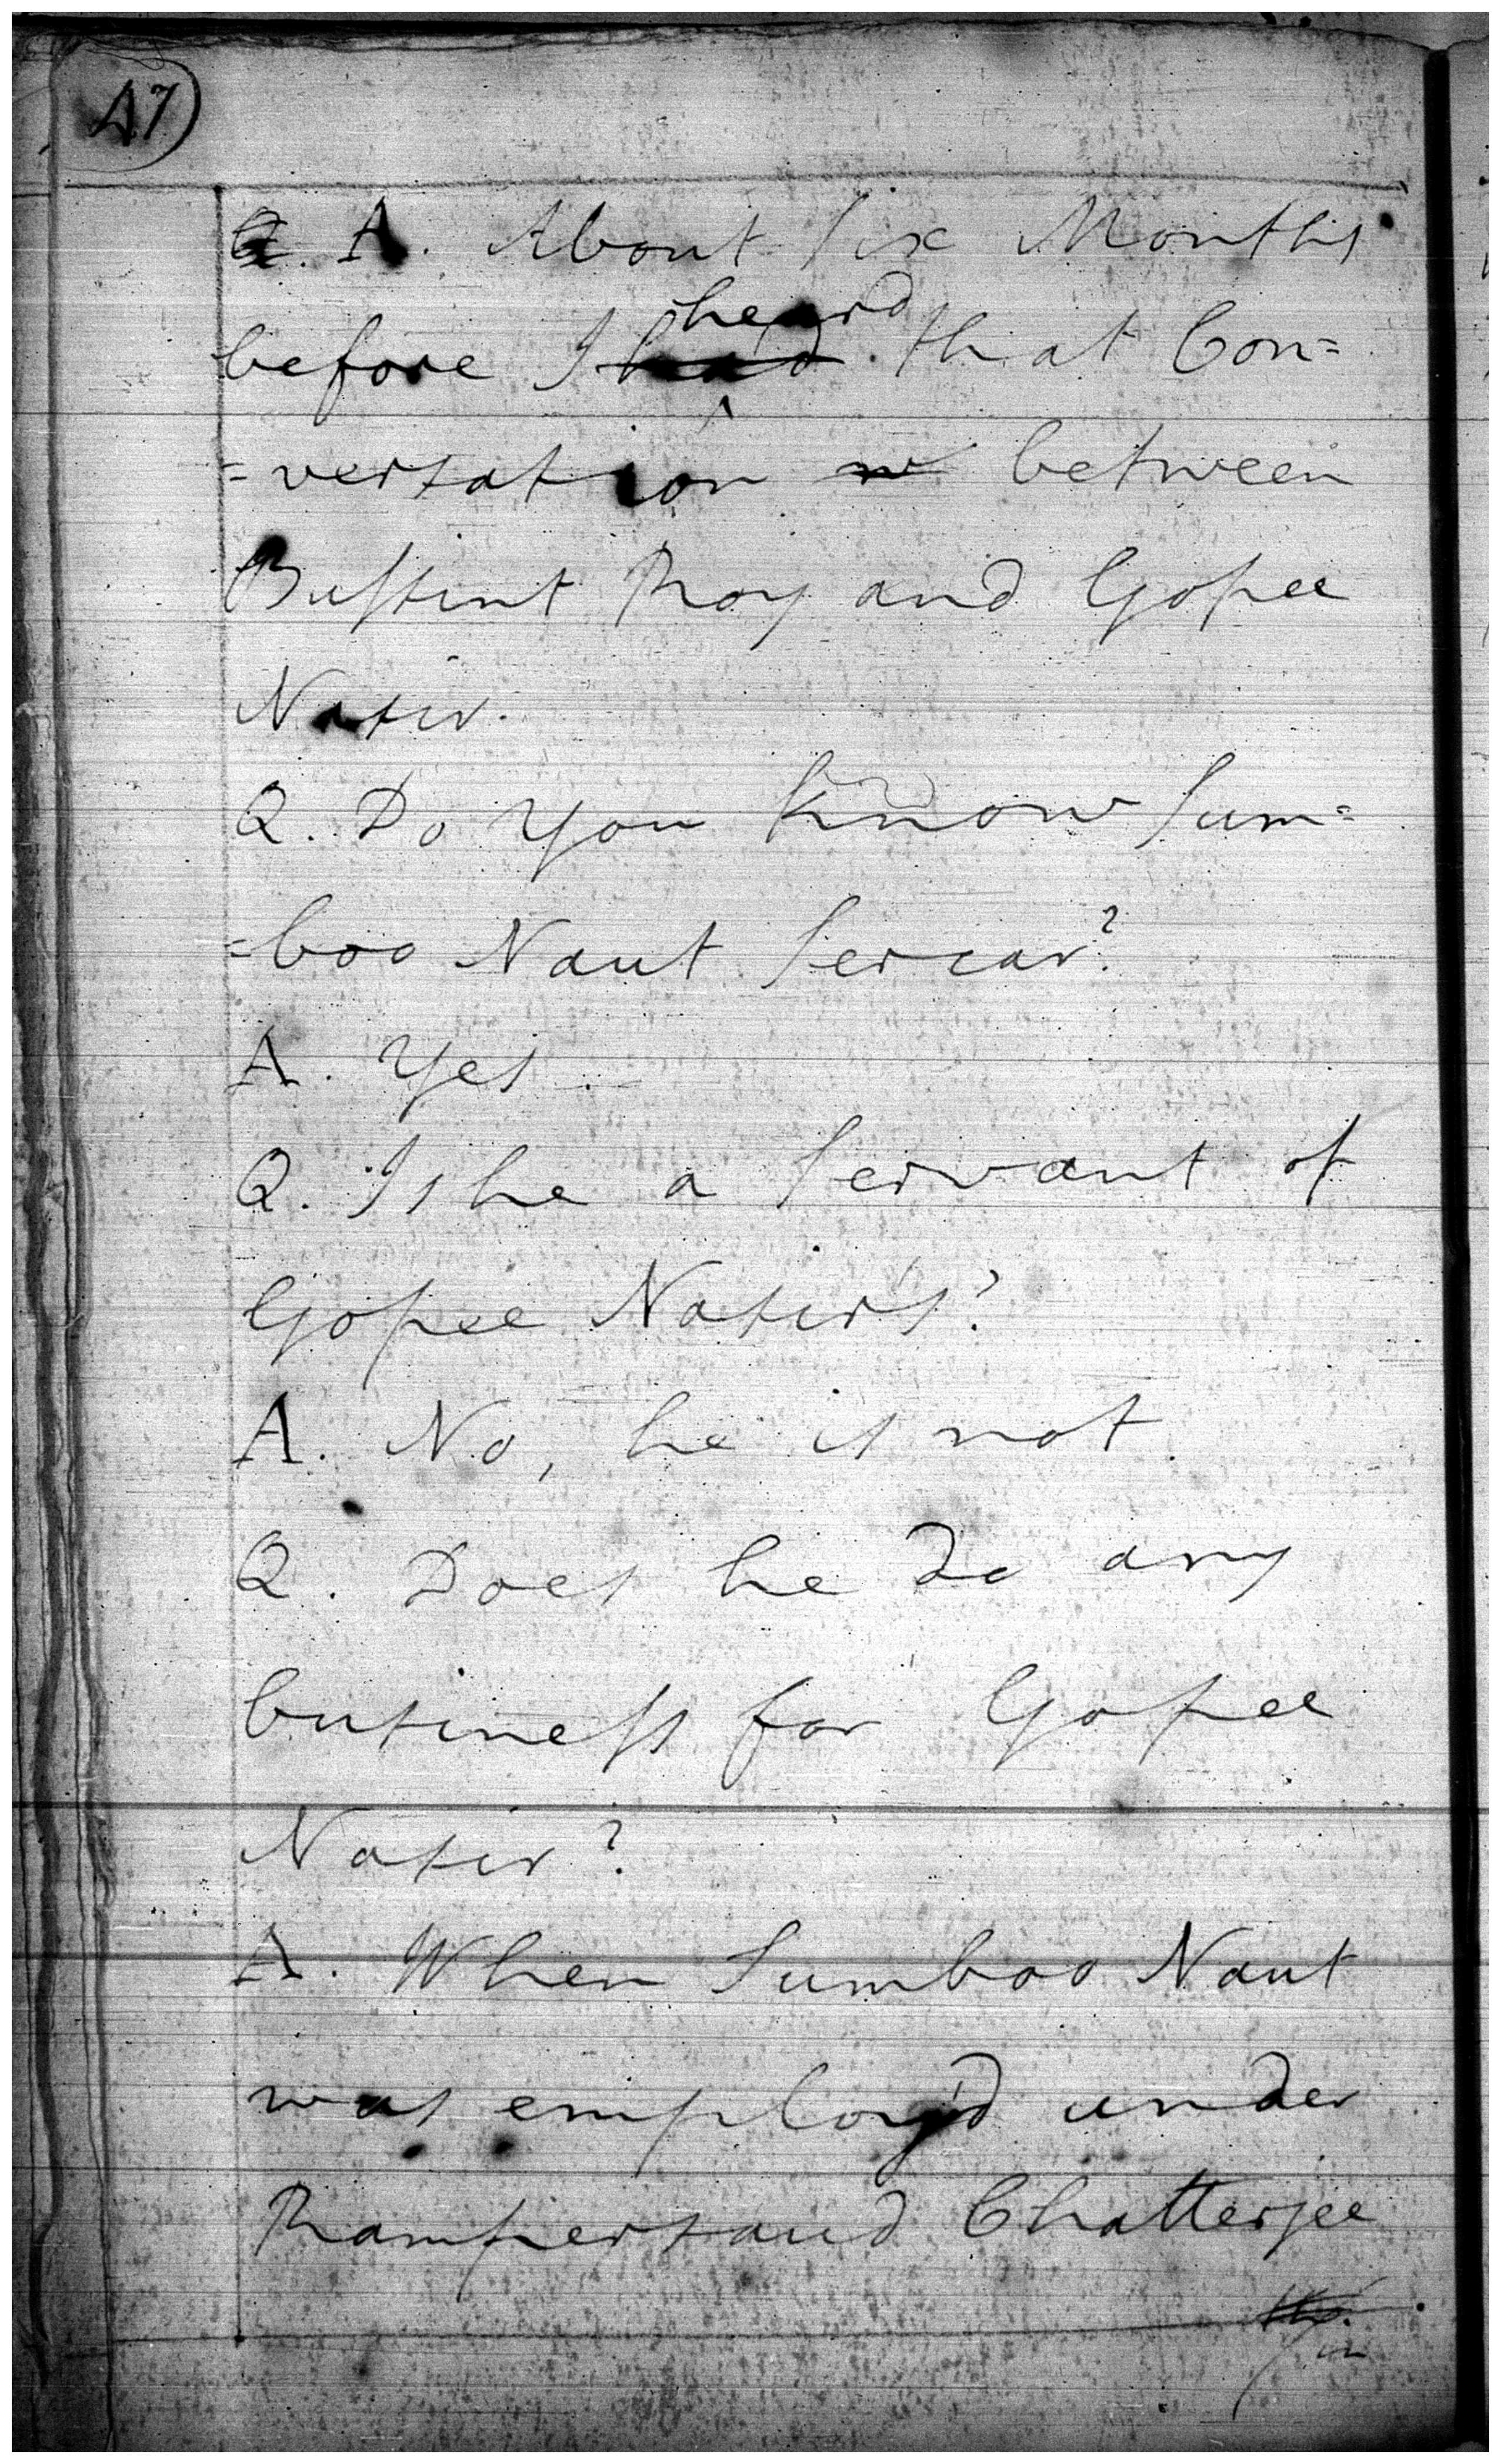 47
Q. A. About Six Months
heard
before I had that Con=
=versation w between
Bussint Roy and Gopee
Nasir.
Q. Do You Know Sum=
=boo Naut Sercar?
A. Yes.
Q. Is he a Servant of
Gopee Nasir's?
A. No, he is not.
Q. Does he do any
business for Gopee
Nasir?
A. When Sumboo Naut
was employ'd under
Rampersaud Chatterjee
in